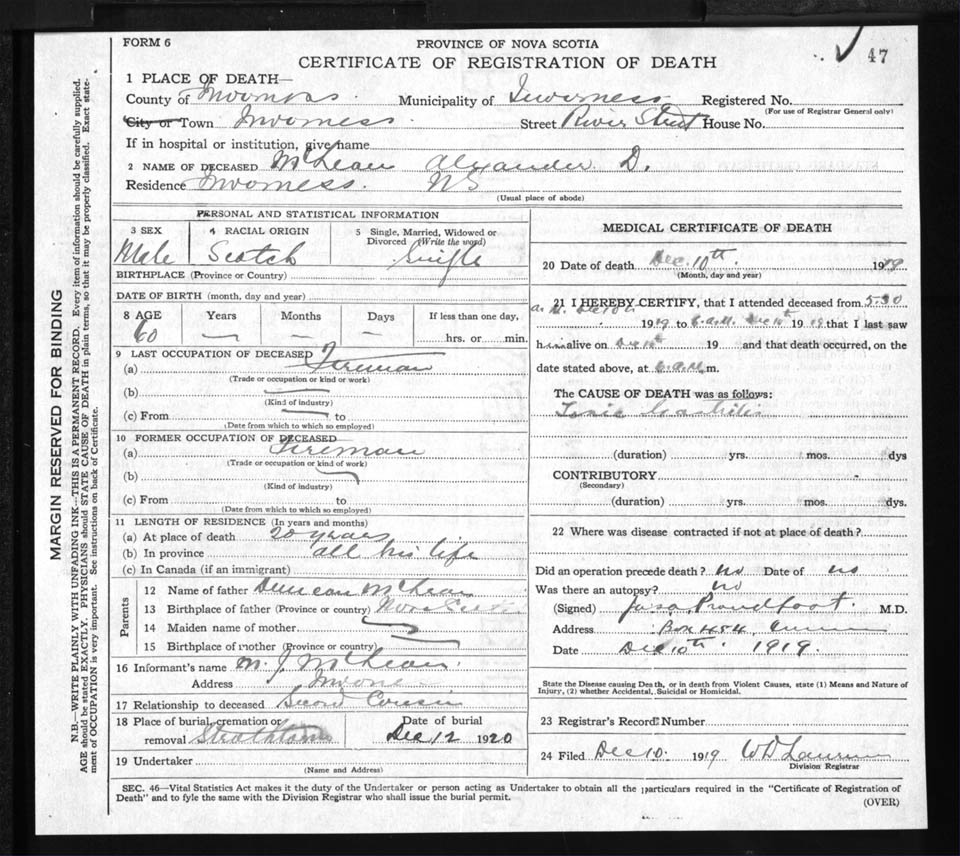 FORM 6
PROVINCE OF NOVA SCOTIA
47
CERTIFICATE OF REGISTRATION OF DEATH
1 PLACE OF DEATH—
County of Inverness Municipality of Inverness Registered No.
(For use of Registrar General only)
City or Town Inverness Street River Street House No.
If in hospital or institution, give name
2 NAME OF DECEASED McLean Alexander D.
Residence Inverness. NS
(Usual place of abode)
PERSONAL AND STATISTICAL INFORMATION
3 SEX 4 RACIAL ORIGIN 5 Single, Married, Widowed or Divorced (Write the word)
Male Scotch Single
BIRTHPLACE (Province or Country)
DATE OF BIRTH (month, day and year)
8 AGE Years Months Days If less than one day,
60 — — — hrs. or min.
9 LAST OCCUPATION OF DECEASED
(a) Fireman
(Trade or occupation or kind or work)
(b)
(Kind of industry)
(c) From to
(Date from which to which so employed)
10 FORMER OCCUPATION OF DECEASED
(a) Fireman
(Trade or occupation or kind of work)
(b)
(Kind of industry)
(c) From to
(Date from which to which so employed)
11 LENGTH OF RESIDENCE (In years and months)
(a) At place of death 20 years
(b) In province all his life
(c) In Canada (if an immigrant)
Parents
12 Name of father Duncan McLean
13 Birthplace of father (Province or country) Nova Scotia
14 Maiden name of mother
15 Birthplace of mother (Province or country)
16 Informant's name M. J. McLean
Address
17 Relationship to deceased Second Cousin
18 Place of burial, cremation or removal Date of burial
Dec 12 1920
19 Undertaker
(Name and Address)
MEDICAL CERTIFICATE OF DEATH
20 Date of death Dec. 10th. 1919
(Month, day and year)
21 I HEREBY CERTIFY, that I attended deceased from 5.30
a. M. Dec 10th 1919 to 6. a.M. Dec 10th 1919 that I last saw
him alive on Dec 10th 19 and that death occurred, on the
date stated above, at 6. a.M. m.
The CAUSE OF DEATH was as follows:
Toxic
(duration) yrs. mos. dys
CONTRIBUTORY
(Secondary)
(duration) yrs. mos. dys.
22 Where was disease contracted if not at place of death?
Did an operation precede death? no Date of no
Was there an autopsy? no
(Signed) Proudfoot. M.D.
Address Box 454
Date Dec 10th 1919.
State the Disease causing Death, or in death from Violent Causes, state (1) Means and Nature of
Injury, (2) whether Accidental, Suicidal or Homicidal.
23 Registrar's Record Number
24 Filed Dec 10. 1919 W D
Division Registrar
SEC. 46—Vital Statistics Act makes it the duty of the Undertaker or person acting as Undertaker to obtain all the particulars required in the "Certificate of Registration of
Death" and to fyle the same with the Division Registrar who shall issue the burial permit.
(OVER)
MARGIN RESERVED FOR BINDING
N.B.—WRITE PLAINLY WITH UNFADING INK—THIS IS A PERMANENT RECORD. Every item of information should be carefully supplied.
AGE should be stated EXACTLY. PHYSICIANS should STATE CAUSE OF DEATH in plain terms, so that it may be properly classified. Exact state-
ment of OCCUPATION is very important. See instructions on back of Certificate.